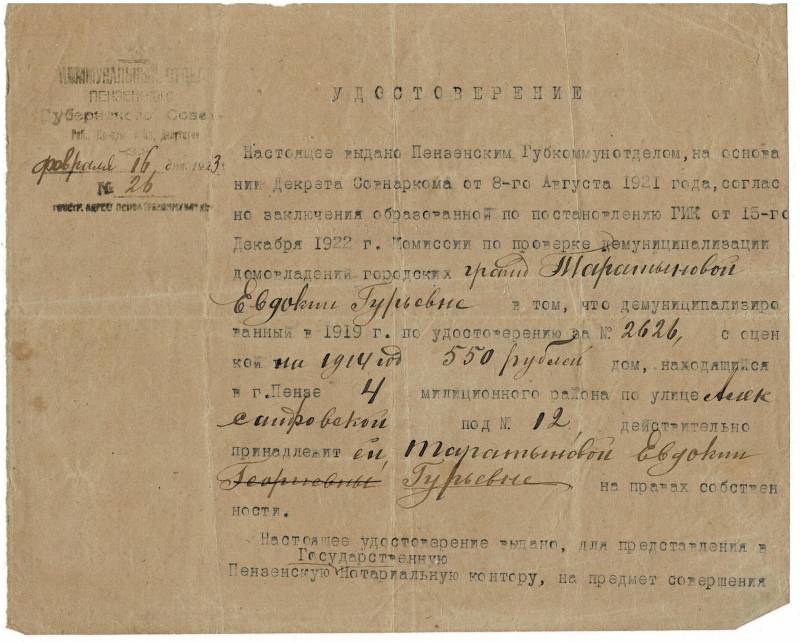 КОММУНАЛЬНЫЙ ОТДЕЛ
ПЕНЗЕНСКОГО
Губернского Совета
Раб., Депутатов
февраля 16 дня 1923 г.
№ 26
УДОСТОВЕРЕНИЕ
Настоящее выдано Пензенским Губкоммунотделом, на основа
нии Декрета Совнаркома от 8-го Августа 1921 года, соглас
но заключения образованной по постановлению ГИК от 15-го
Декабря 1922 г. Комиссии по проверке демуниципализации
домовладений городских гражд Таратыновой
Евдокии Гурьевне в том, что демуниципализиро
ванный в 1919 г. по удостоверению за № 2626, с оцен
кой на 1914 год 550 рублей дом, находящийся
в г. Пензе 4 милиционного района по улице Алек
сандровской под № 12 действительно
принадлежит ей, Таратыновой Евдокии
Георгиевны Гурьевне на правах собствен
ности.
Настоящее удостоверение выдано, для представления в
Государственную
Пензенскую Нотариальную контору, на предмет совершения